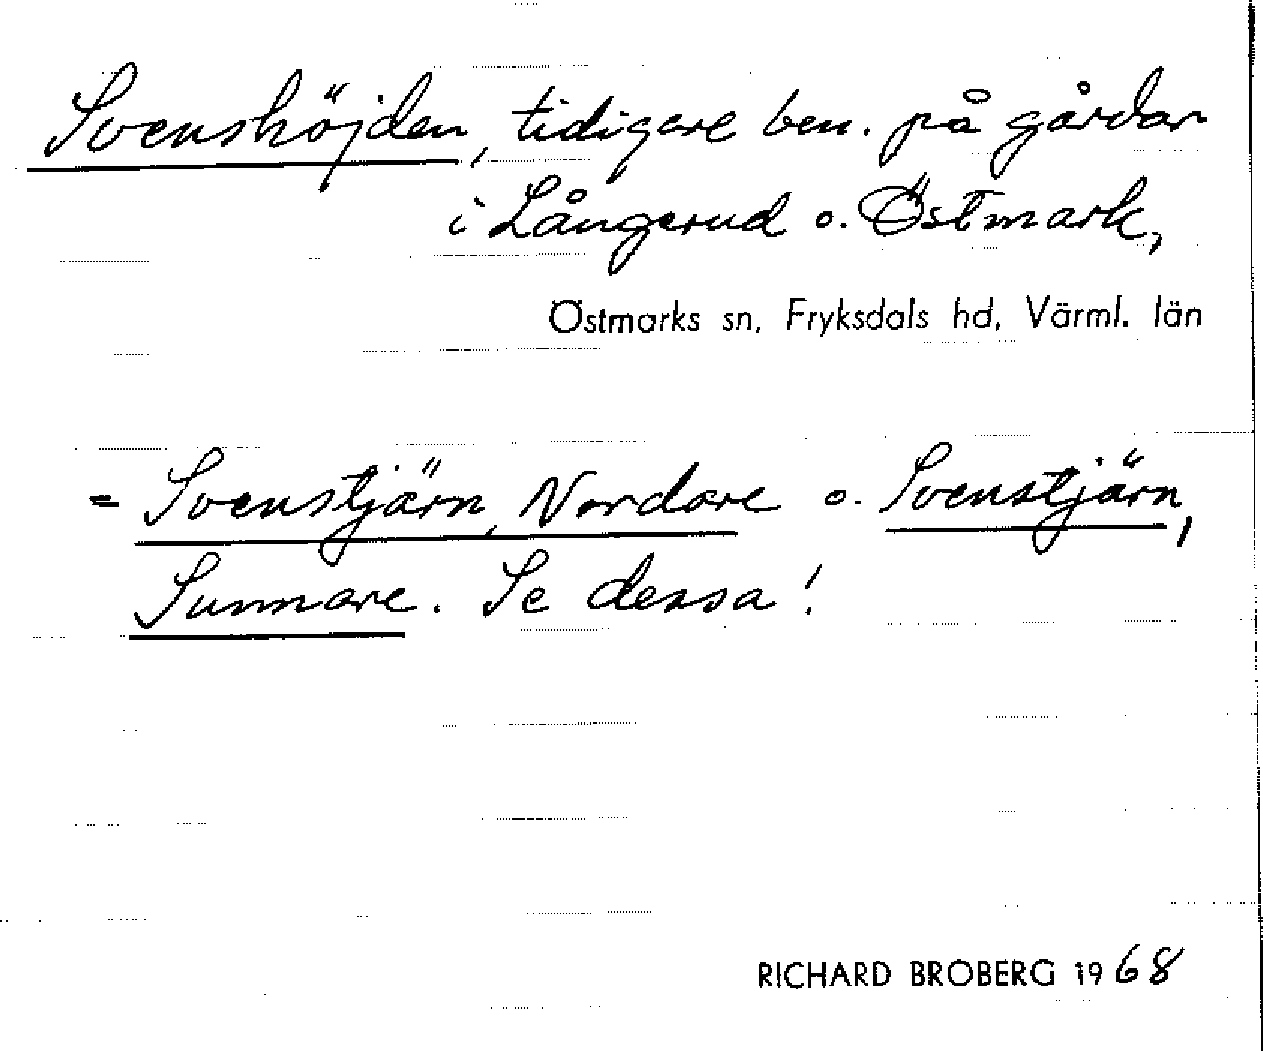 Svenshöjden, tidigare ben. på gårdar
i Långerud o. Östmark,
Östmarks sn, Fryksdals hd, Värml. län
= Svenstjärn, Nordare o. Svenstjärn,
Sunnare. Se dessa!
RICHARD BROBERG 1968